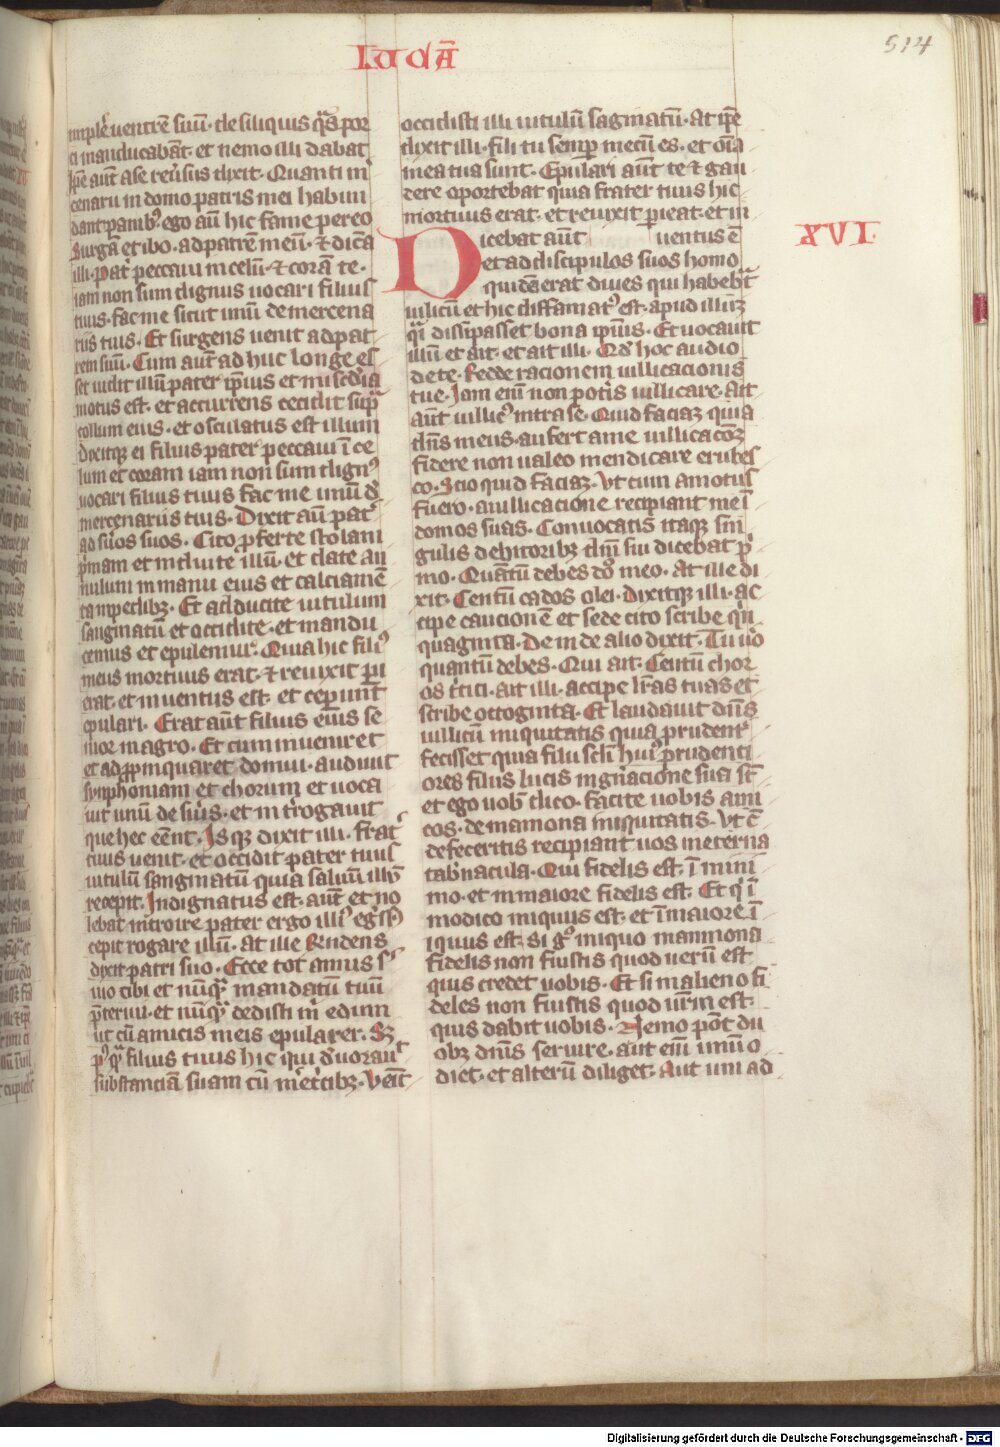 LUCĀ
514
implēt uentrē suū · de siliquis q̄s por
ci manducabāt · et nemo illi dabat
Ipē aūt a se reu̓sus dixit · Quanti m̓
cenarii in domo patris mei habūn
dant panibꝰ ego aūt hic fame pereo
Surgā et ibo · ad patrē meū · ⁊ dicā
illi · pat̓ peccaui in celū · ⁊ corā te ·
iam non sum dignus uocari filius
tuus · fac me sicut unū de mercena
riis tuis · Et surgens uenit ad pat
rem suū · Cum aūt ad huc longe es
set uidit illū pater ip̄ius et mis̄cdīa
motus est · et accurrens cecidit sup̄
collum eius · et osculatus est illum
dixitqꝫ ei filius pater peccaui ī ce
lum et coram iam non sum dignꝰ
uocari filius tuus fac me unū d̓
mercenariis tuis · Dixit aūt pat̓
ad suos suos · Cito p̄ferte stolam
p̓mam et induite illū · et date an
nulum in manu eius et calciamē
ta in pedibꝫ · Et adducite uitulum
sanginatū et occidite · et mandu
cemus et epulemur · Quia hic filiꝰ
meus mortuus erat · ⁊ reuixit p̄i
erat · et inuentus est · et ceperunt
epulari · Erat aūt filius eius se
nior in agro · Et cum inueniret
et ad p̄pinquaret domui · audiuit
synphoniam et chorum et uoca
uit unū de su̓is · et int̓rogauit
que hec eēnt · Is qꝫ dixit illi · frat̓
tuus uenit · et occidit pater tuus
uitulū sanginatū quia saluū illū
recepit · Indignatus est · aūt et no
lebat introire pater ergo illiꝰ eg̓ssꝰ
cepit rogare illū · at ille Rn̄dens
dixit patri suo · Ecce tot annis s̓
uio tibi et nūqᷓ mandatū tuū
p̄teriui · et nūqᷓ dedisti m̓ edum
ut cū amicis meis epularer · Sꝫ
pꝰqᷓ filius tuus hic qui d̓uorauit
substanciā suam cū m̓et̓cibꝫ · Venit
occidisti illi uitulū saginatū · at ip̄e
dixit illi · fili tu semp̄ mecū es · et oīa
mea tua sunt · Epulari aūt te ⁊ gau
dere oportebat quia frater tuus hic
mortuus erat · et reuixit p̄ieat · et in
Dicebat aūt uentus ē
XVI
et ad discipulos suos homo
quidē erat diues qui habebat̓
uilicū et hic diffamatꝰ est · apud illū
qᷓi dissipasset bona ipius · Et uocauit
illū et ait · et ait illi · Qd̓ hoc audio
de te · Redde racionem uillicacionis
tue · Iam em̄ non pot̓is uillicare · Ait
aūt uillicꝰ intra se · Quid faciaꝫ quia
dn̄s meus · aufert a me uillicacōeꝫ
fidere non ualeo mendicare erubes
co · Scio quid faciaꝫ · Vt cum amotus
fuero · a uillicacione recipiant me ī
domos suas · Conuocatis itaqꝫ sin
gulis debitoribꝫ dn̄i sui dicebat p̓
mo · Quātū debes dn̄o meo · At ille di
xit · Centū cados olei · Dixitqꝫ illi · ac
cipe caucionē et sede cito scribe qᷓn
quaginta · De in de alio dixit · Tu u̓o
quantū debes · Qui ait · Centū chor
os t̓tici · ait illi · accipe lr̄as tuas et
scribe octoginta · Et laudauit dn̄s
uillicū iniquitatis quia prudent̓
fecisset quia filii scl̄i huiꝰ prudenti
ores filiis lucis in gn̓acione sua st̄
et ego uob̄ dico · facite uobis ami
cos · de mamona iniquitatis · Vt cū
defeceritis recipiant uos in eterna
tab̓nacula · Qui fidelis est · ī mini
mo · et in maiore fidelis est · Et q̓ ī
modico iniquus est · et ī maiore ī
iquus est · Si gꝰ iniquo mammona
fidelis non fuistis quod uerū est
quis credet uobis · Et si in alieno fi
deles non fuistis quod ur̄m est ·
quis dabit uobis · Nemo pōt du
obꝫ dn̄is seruire · aut em̄ unū o
diet · et alterū diliget · Aut uni ad
Digitalisierung gefördert durch die Deutsche Forschungsgemeinschaft - DFG